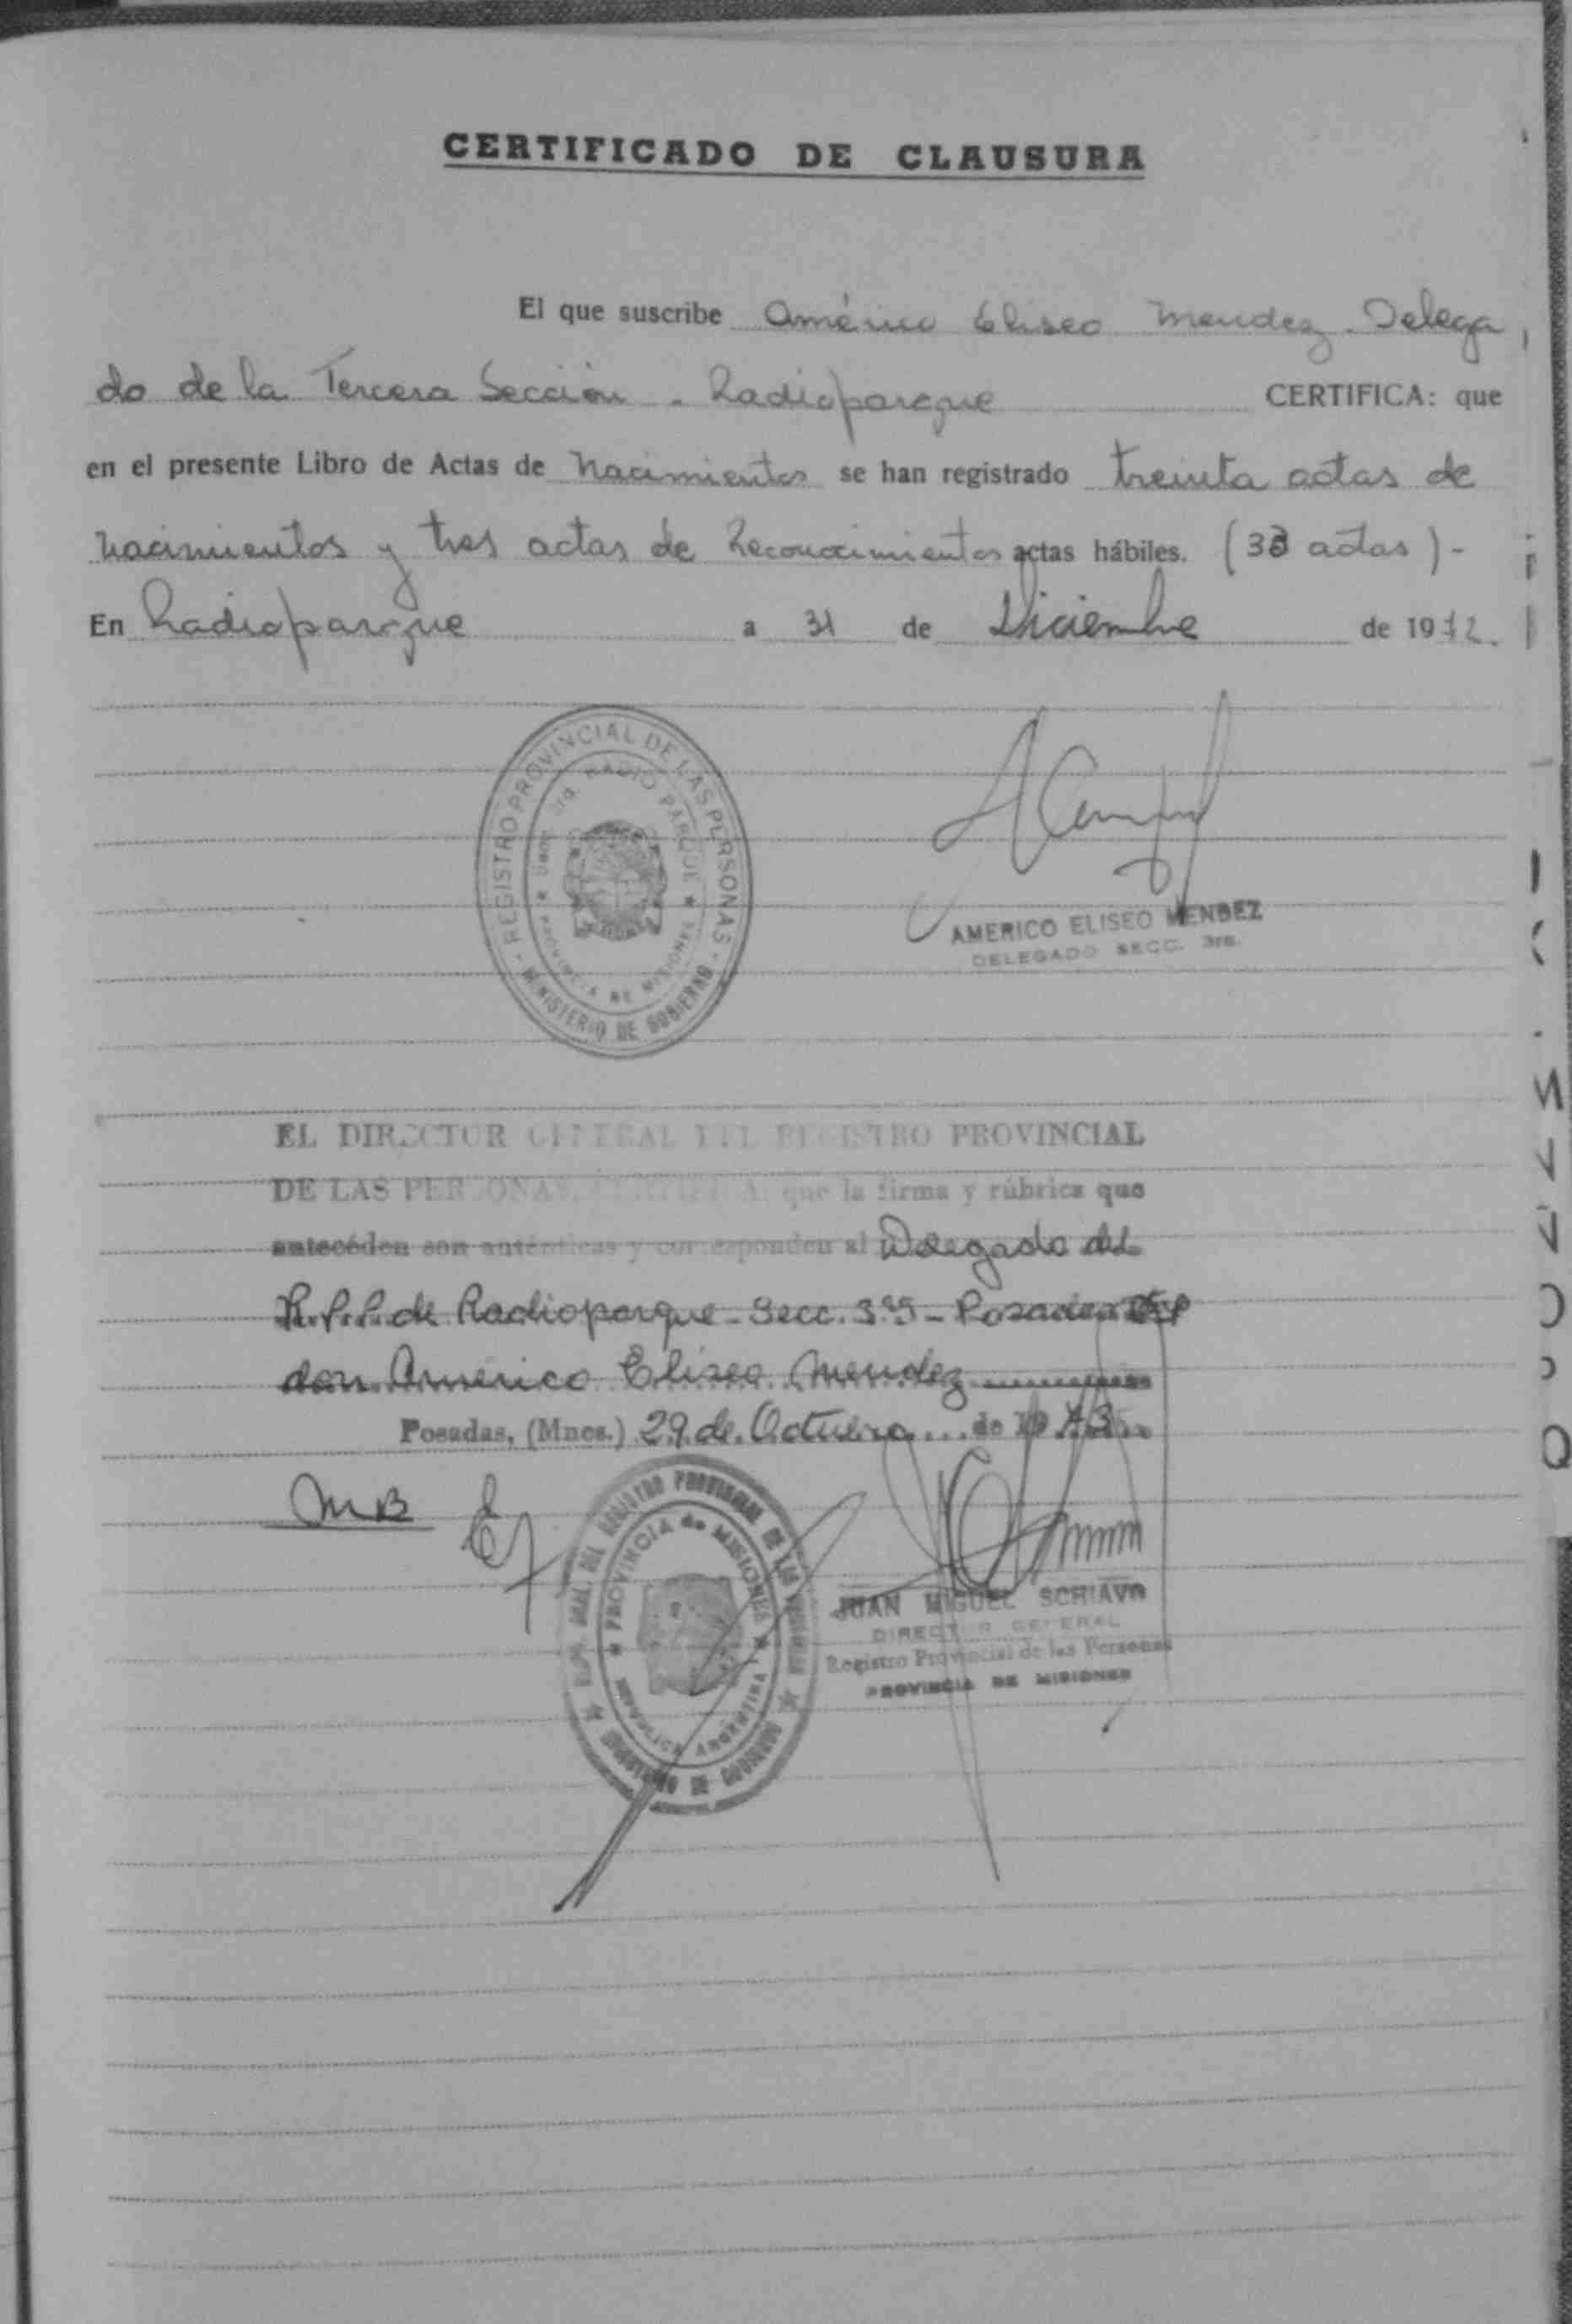 CERTIFICADO DE CLAUSURA
El que suscribe Américo Eliseo Mendez Delega
do de la Tercera Sección - Radioparque CERTIFICA: que
en el presente Libro de Actas de Nacimientos se han registrado treinta actas de
nacimientos y tres actas de Reconocimientos actas hábiles. (33 actas) -
En Radioparque a 31 de Diciembre de 1972.
REGISTRO PROVINCIAL DE LAS PERSONAS
RADIO PARQUE
PROVINCIA DE MISIONES
MINISTERIO DE GOBIERNO
AMERICO ELISEO MENDEZ
DELEGADO SECC. 3ra.
EL DIRECTOR GENERAL DEL REGISTRO PROVINCIAL
DE LAS PERSONAS, CERTIFICA: que la firma y rúbrica que
anteceden son auténticas y corresponden al Delegado del
R.P.P. de Radioparque - Secc. 3ra -
don Americo Eliseo Mendez
Posadas, (Mnes.) 29 de Octubre de 1973
MB
REGISTRO PROVINCIAL DE LAS PERSONAS
PROVINCIA de MISIONES
REPUBLICA ARGENTINA
MINISTERIO DE GOBIERNO
JUAN MIGUEL SCHIAVO
DIRECTOR GENERAL
Registro Provincial de las Personas
PROVINCIA DE MISIONES